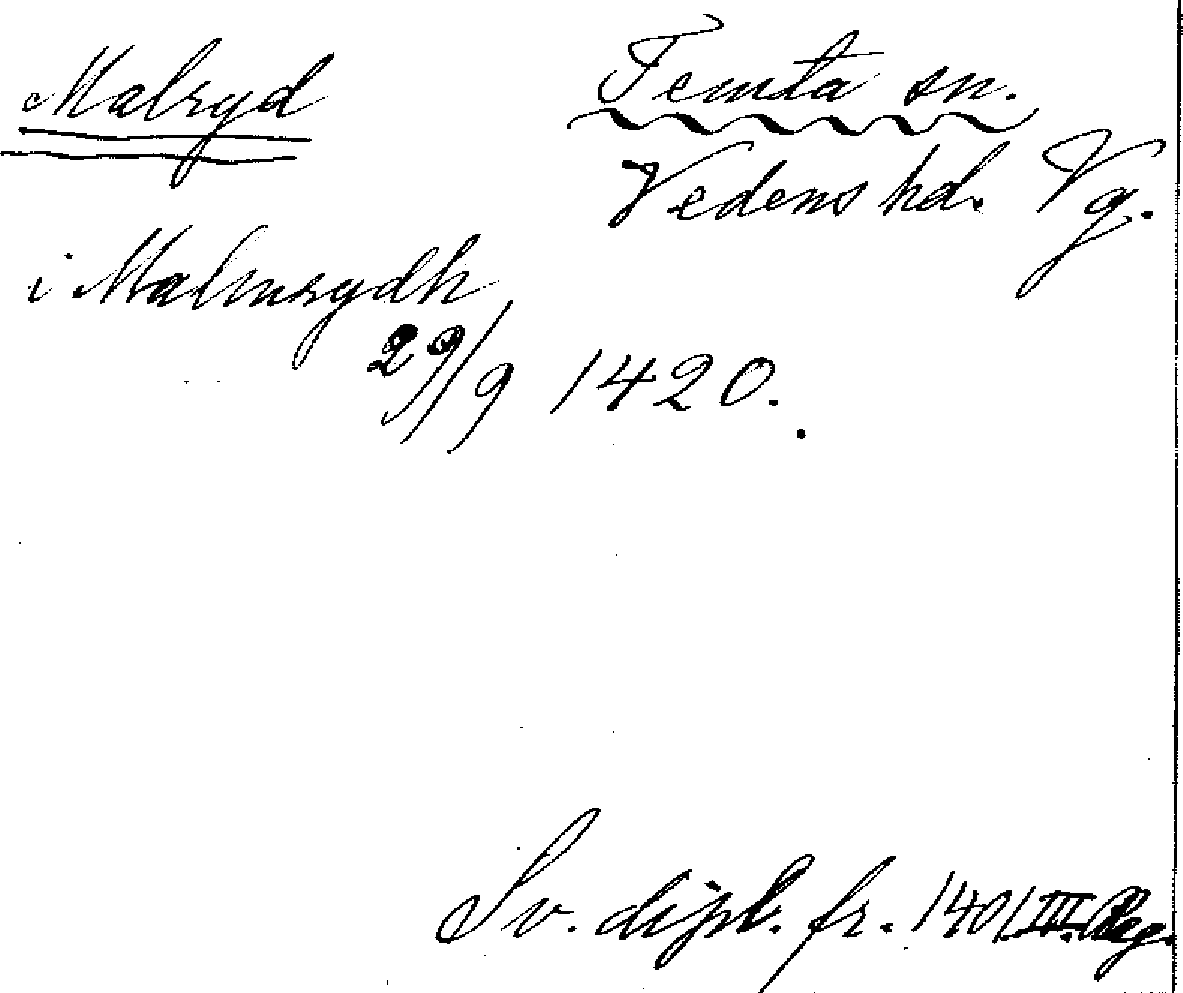 Malryd
Temta sn.
Vedens hd. Vg.
i Malmrydh
29/9 1420.
Sv. dipl. fr. 1401 III. Reg.